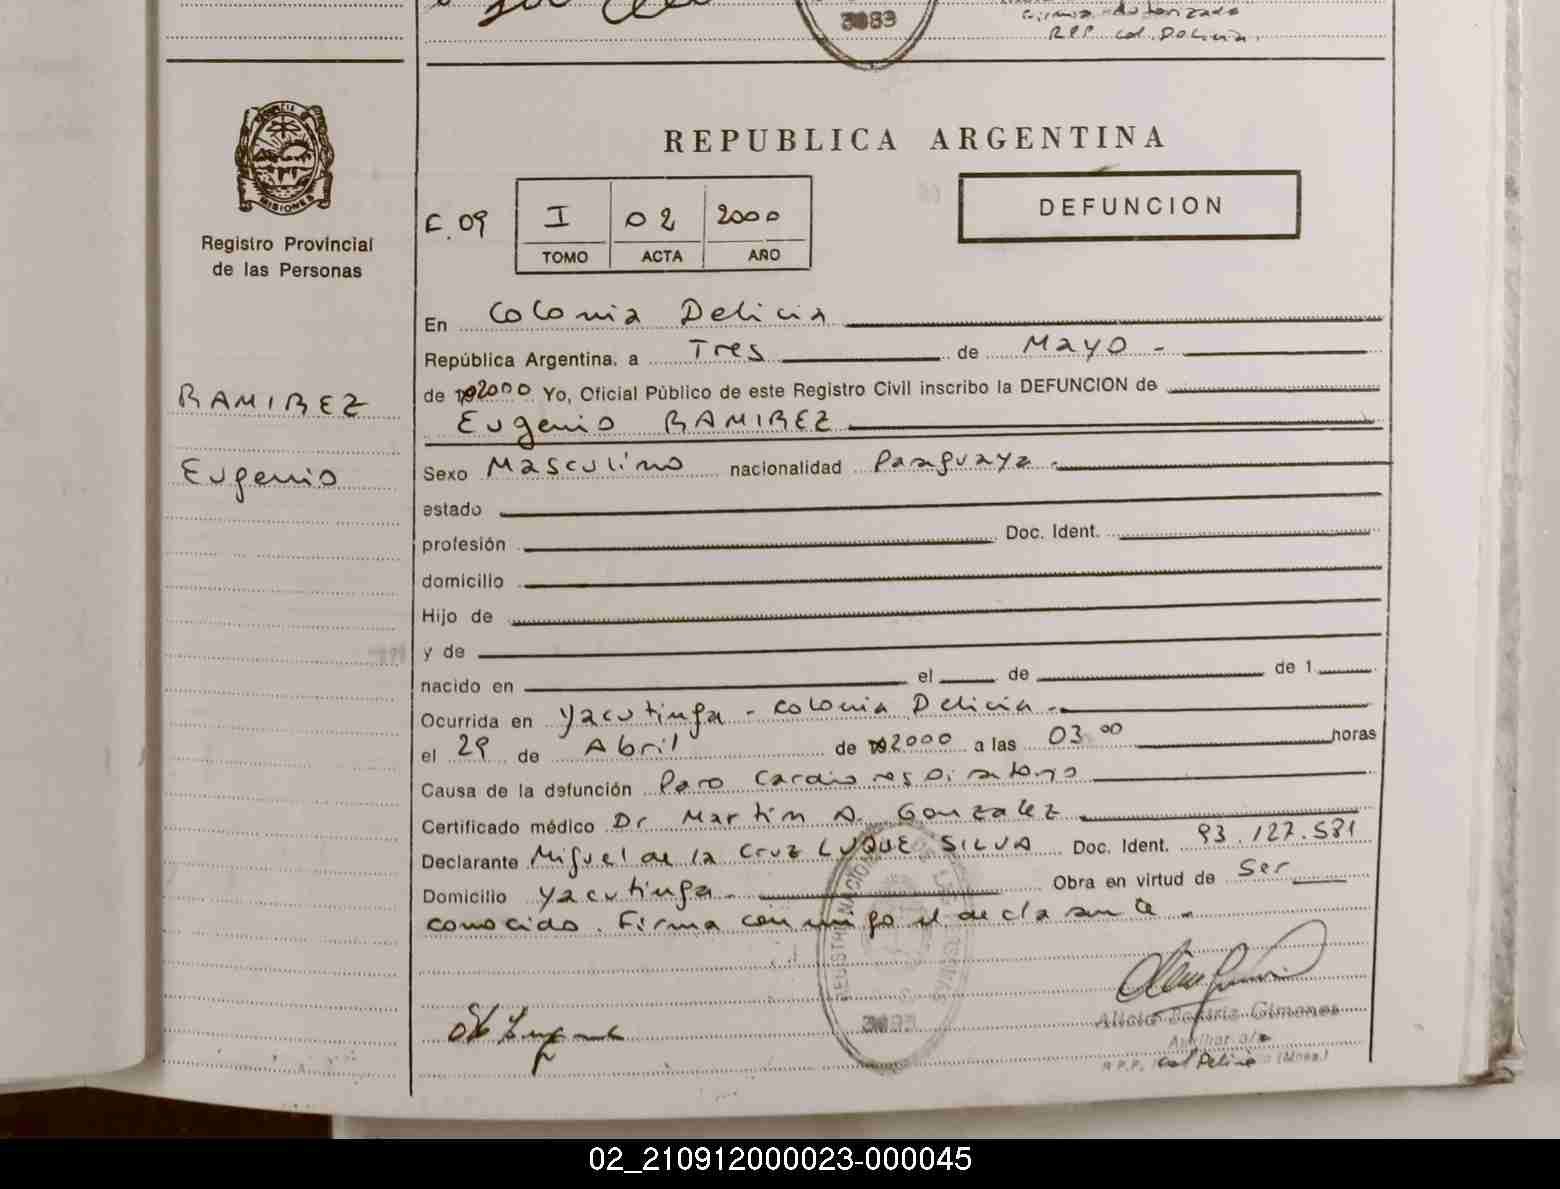 3083
Firma Autorizada
RPP Col. Delicia.
MISIONES
Registro Provincial
de las Personas
RAMIREZ
Eugenio
REPUBLICA ARGENTINA
F. 09
I 02 2000
TOMO ACTA AÑO
DEFUNCION
En Colonia Delicia
República Argentina, a Tres de Mayo -
de 192000 Yo, Oficial Público de este Registro Civil inscribo la DEFUNCION de
Eugenio RAMIREZ
Sexo Masculino nacionalidad Paraguaya -
estado
profesión Doc. Ident.
domicilio
Hijo de
y de
nacido en el de de 1
Ocurrida en Yacutinga - Colonia Delicia -
el 29 de Abril de 192000 a las 03 00 horas
Causa de la defunción Paro Cardiorespiratorio
Certificado médico Dr Martin A. Gonzalez
Declarante Miguel de la Cruz LUQUE SILVA Doc. Ident. 93.127.581
Domicilio Yacutinga - Obra en virtud de Ser
conocido. Firma conmigo el declarante -
3083
Alicia Beatriz Gimenez
Auxiliar a/c
R.P.P. Col Delicia (Mnes.)
02_210912000023-000045